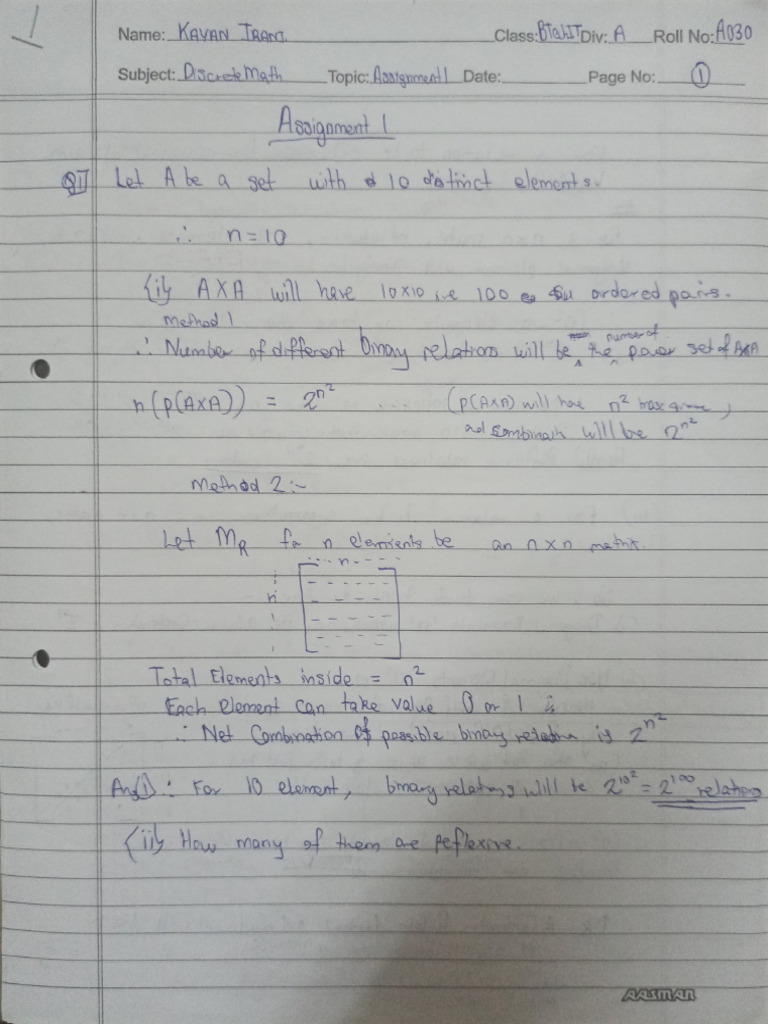 Name: KAVAN IRANI Class: BTechIT Div: A Roll No: A030
Subject: Discrete Math Topic: Assignment 1 Date: Page No: 1
Assignment 1
Q1] Let A be a set with 10 distinct elements.
∴ n = 10
{i} A X A will have 10x10 i.e 100 ordered pairs.
Method 1
∴ Number of different binary relations will be the number of power set of AXA
n(P(AXA)) = 2^n² ... (P(AXA) will have n²
and will be 2^n²
Method 2:-
Let M_R for n elements be an n x n matrix.
... n ...
n
Total Elements inside = n²
Each element can take value 0 or 1
∴ Net Combination of possible binary relation is 2^n²
Ans(1): For 10 element, binary relations will be 2^10² = 2^100 relations
{ii} How many of them are reflexive.
AASMAN